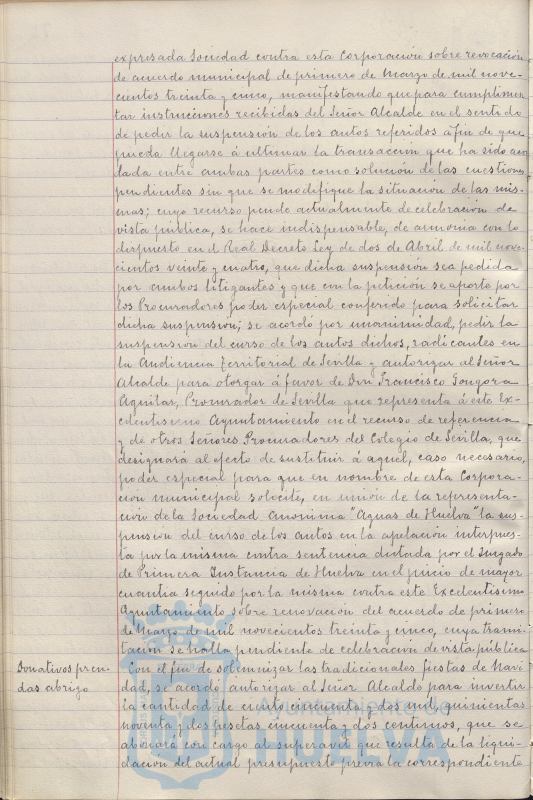 expresada Sociedad contra esta Corporación sobre revocación
de acuerdo municipal de primero de Marzo de mil nove-
cientos treinta y cinco, manifestando que para cumplimen-
tar instrucciones recibidas del Señor Alcalde en el sentido
de pedir la suspensión de los autos referidos á fin de que
pueda llegarse á ultimar la transacción que ha sido acor
dada entre ambas partes como solución de las cuestiones
pendientes sin que se modifique la situación de las mis-
mas; cuyo recurso pende actualmente de celebración de
vista pública, se hace indispensable, de armonia con lo
dispuesto en el Real Decreto Ley de dos de Abril de mil nove-
cientos veinte y cuatro, que dicha suspensión sea pedida
por ambos litigantes y que con la petición se aporte por
los Procuradores poder especial conferido para solicitar
dicha suspensión; se acordó por unanimidad, pedir la
suspensión del curso de los autos dichos, radicantes en
la Audiencia Territorial de Sevilla y autorizar al Señor
Alcalde para otorgar á favor de Don Francisco Gongora
Aguilar, Procurador de Sevilla que representa á este Ex-
celentisimo Ayuntamiento en el recurso de referencia
y de otros Señores Procuradores del Colegio de Sevilla, que
designará al efecto de sustituir á aquel, caso necesario,
poder especial para que en nombre de esta Corpora-
ción municipal solicite, en unión de la representa-
ción de la Sociedad Anonima "Aguas de Huelva" la sus-
pensión del curso de los autos en la apelación interpues-
ta por la misma contra sentencia dictada por el Juzgado
de Primera Instancia de Huelva en el juicio de mayor
cuantia seguido por la misma contra este Excelentisimo
Ayuntamiento sobre renovación del acuerdo de primero
de Marzo de mil novecientos treinta y cinco, cuya trami-
tación se halla pendiente de celebración de vista pública
Donativos pren-
das abrigo
Con el fin de solemnizar las tradicionales fiestas de Navi
dad, se acordó autorizar al Señor Alcalde para invertir
la cantidad de ciento cincuenta y dos mil, quinientas
noventa y dos pesetas cincuenta y dos centimos, que se
abonará con cargo al superavit que resulta de la liqui-
dación del actual presupuesto previa la correspondiente
Ayuntamiento de
HUELVA